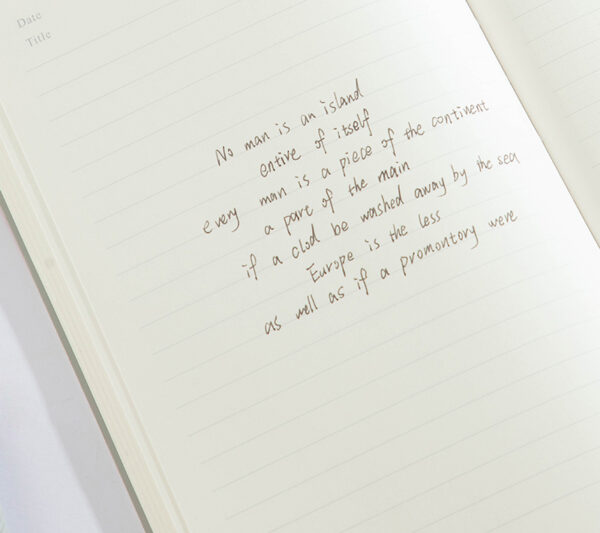 Date
Title
No man is an island
entive of itself
every man is a piece of the continent
a pare of the main
if a clod be washed away by the sea
Europe is the less
as well as if a promontory were